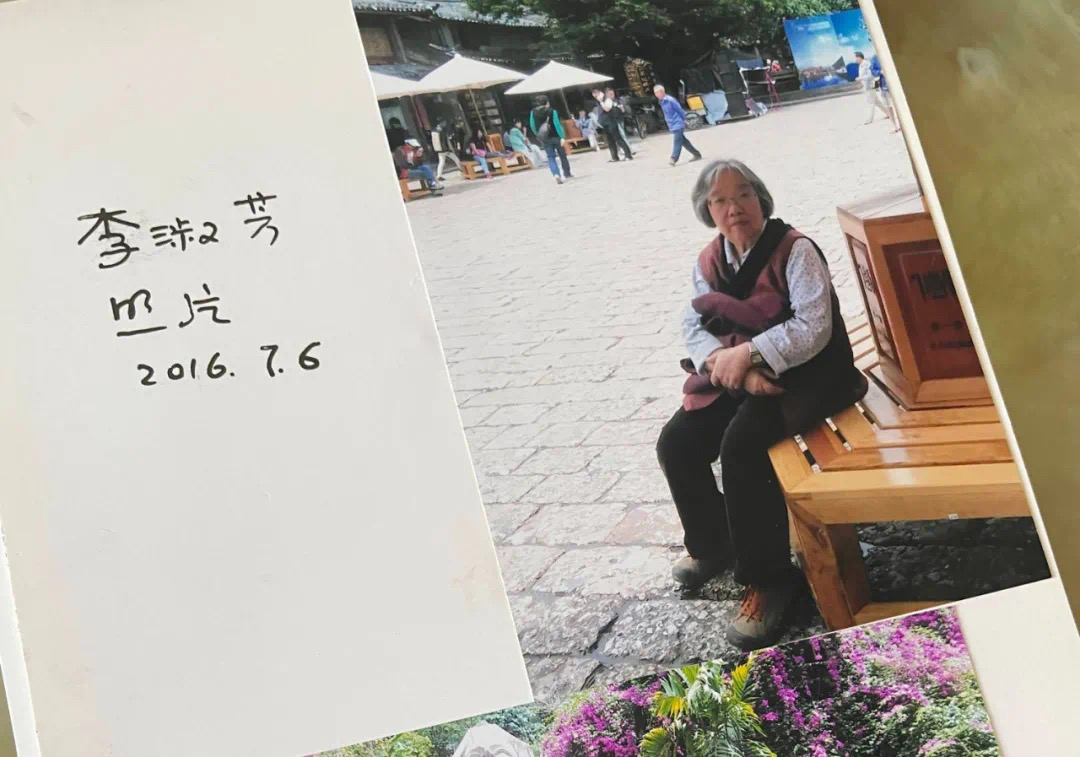 李淑芳
照片
2016.7.6